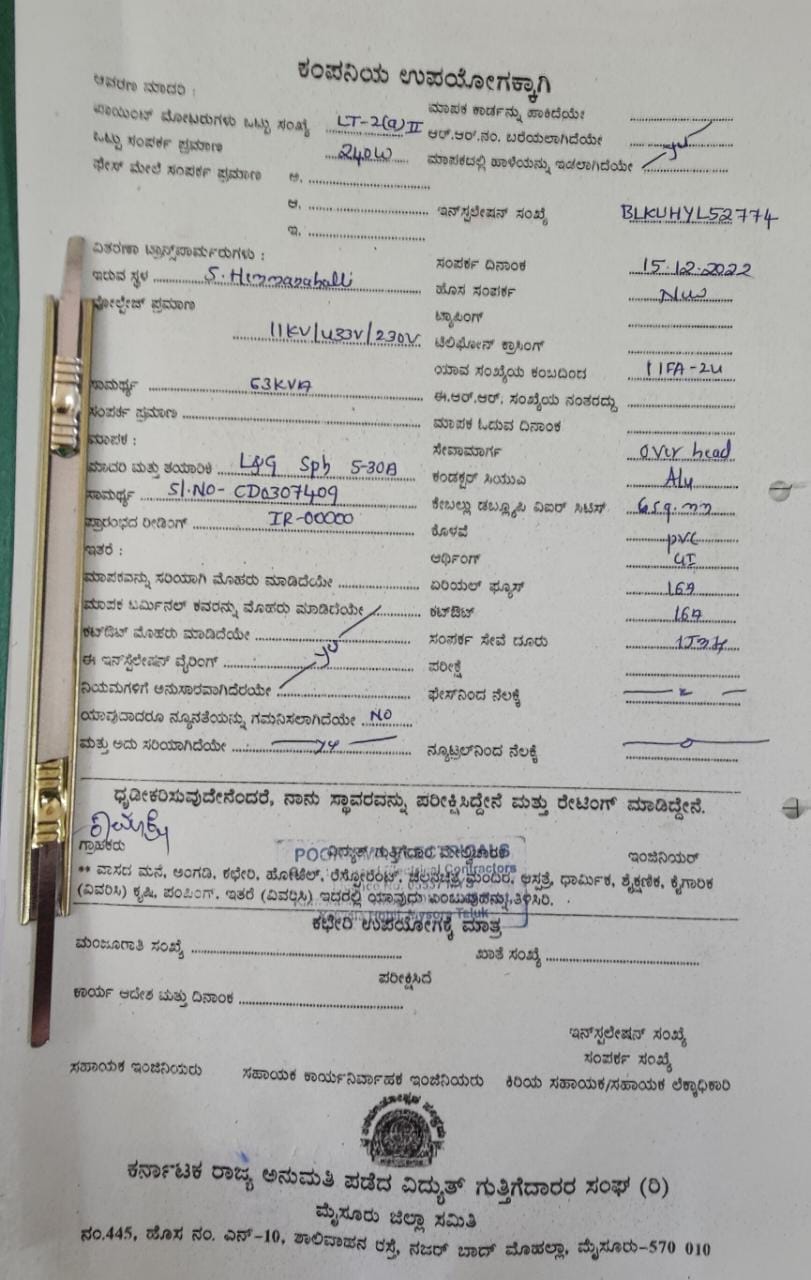 ಕಂಪನಿಯ ಉಪಯೋಗಕ್ಕಾಗಿ
ಆವರಣ ಮಾದರಿ :
ಪಾಯಿಂಟ್ ಮೋಟರುಗಳು ಒಟ್ಟು ಸಂಖ್ಯೆ LT-2(a)II
ಒಟ್ಟು ಸಂಪರ್ಕ ಪ್ರಮಾಣ 240W
ಫೇಸ್ ಮೇಲೆ ಸಂಪರ್ಕ ಪ್ರಮಾಣ ಅ.
ಆ.
ಇ.
ಮಾಪಕ ಕಾರ್ಡನ್ನು ಹಾಕಿದೆಯೇ
ಆರ್.ಆರ್.ನಂ. ಬರೆಯಲಾಗಿದೆಯೇ
ಮಾಪಕದಲ್ಲಿ ಹಾಳೆಯನ್ನು ಇಡಲಾಗಿದೆಯೇ
ಇನ್‌ಸ್ಟಲೇಷನ್ ಸಂಖ್ಯೆ BLKUHYL52774
ವಿತರಣಾ ಟ್ರಾನ್ಸ್‌ಫಾರ್ಮರುಗಳು :
ಇರುವ ಸ್ಥಳ S. Hemmanahalli
ವೋಲ್ಟೇಜ್ ಪ್ರಮಾಣ
11KV/433V/230V
ಸಾಮರ್ಥ್ಯ 63KVA
ಸಂಪರ್ಕ ಪ್ರಮಾಣ
ಮಾಪಕ :
ಮಾದರಿ ಮತ್ತು ತಯಾರಿಕೆ L&G Sph 5-30A
ಸಾಮರ್ಥ್ಯ Sl.NO- CD0307409
ಪ್ರಾರಂಭದ ರೀಡಿಂಗ್ IR-00000
ಇತರೆ :
ಮಾಪಕವನ್ನು ಸರಿಯಾಗಿ ಮೊಹರು ಮಾಡಿದೆಯೇ
ಮಾಪಕ ಟರ್ಮಿನಲ್ ಕವರನ್ನು ಮೊಹರು ಮಾಡಿದೆಯೇ
ಕಟ್‌ಔಟ್ ಮೊಹರು ಮಾಡಿದೆಯೇ
ಈ ಇನ್‌ಸ್ಟಲೇಷನ್ ವೈರಿಂಗ್
ನಿಯಮಗಳಿಗೆ ಅನುಸಾರವಾಗಿದೆಯೇ
ಯಾವುದಾದರೂ ನ್ಯೂನತೆಯನ್ನು ಗಮನಿಸಲಾಗಿದೆಯೇ NO
ಮತ್ತು ಅದು ಸರಿಯಾಗಿದೆಯೇ
ಸಂಪರ್ಕ ದಿನಾಂಕ 15.12.2022
ಹೊಸ ಸಂಪರ್ಕ New
ಟ್ಯಾಪಿಂಗ್
ಟೆಲಿಫೋನ್ ಕ್ರಾಸಿಂಗ್
ಯಾವ ಸಂಖ್ಯೆಯ ಕಂಬದಿಂದ
ಈ.ಆರ್.ಆರ್. ಸಂಖ್ಯೆಯ ನಂತರದ್ದು
ಮಾಪಕ ಓದುವ ದಿನಾಂಕ
ಸೇವಾಮಾರ್ಗ over head
ಕಂಡಕ್ಟರ್ ಸಿಯುಎ Alu
ಕೇಬಲ್ಲು ಡಬ್ಲ್ಯೂಪಿ ವಿಐಆರ್ ಸಿಟಿಸ್ 6sq.mm
ಕೊಳವೆ pvc
ಅರ್ಥಿಂಗ್ GI
ಏರಿಯಲ್ ಫ್ಯೂಸ್ 16A
ಕಟ್‌ಔಟ್ 16A
ಸಂಪರ್ಕ ಸೇವೆ ದೂರು
ಪರೀಕ್ಷೆ
ಫೇಸ್‌ನಿಂದ ನೆಲಕ್ಕೆ
ನ್ಯೂಟ್ರಲ್‌ನಿಂದ ನೆಲಕ್ಕೆ
ಧೃಡೀಕರಿಸುವುದೇನೆಂದರೆ, ನಾನು ಸ್ಥಾವರವನ್ನು ಪರೀಕ್ಷಿಸಿದ್ದೇನೆ ಮತ್ತು ರೇಟಿಂಗ್ ಮಾಡಿದ್ದೇನೆ.
ಗ್ರಾಹಕರು ವಿದ್ಯುತ್ ಗುತ್ತಿಗೆದಾರ ಮೇಲ್ವಿಚಾರಕ ಇಂಜಿನಿಯರ್
** ವಾಸದ ಮನೆ, ಅಂಗಡಿ, ಕಛೇರಿ, ಹೋಟೆಲ್, ರೆಸ್ಟೋರೆಂಟ್, ಚಲನಚಿತ್ರ ಮಂದಿರ, ಆಸ್ಪತ್ರೆ, ಧಾರ್ಮಿಕ, ಶೈಕ್ಷಣಿಕ, ಕೈಗಾರಿಕ
(ವಿವರಿಸಿ) ಕೃಷಿ, ಪಂಪಿಂಗ್, ಇತರೆ (ವಿವರಿಸಿ) ಇದರಲ್ಲಿ ಯಾವುದು ಎಂಬುವುದನ್ನು ತಿಳಿಸಿರಿ.
ಕಛೇರಿ ಉಪಯೋಗಕ್ಕೆ ಮಾತ್ರ
ಮಂಜೂರಾತಿ ಸಂಖ್ಯೆ ಖಾತೆ ಸಂಖ್ಯೆ
ಪರೀಕ್ಷಿಸಿದೆ
ಕಾರ್ಯ ಆದೇಶ ಮತ್ತು ದಿನಾಂಕ
ಇನ್‌ಸ್ಟಲೇಷನ್ ಸಂಖ್ಯೆ
ಸಂಪರ್ಕ ಸಂಖ್ಯೆ
ಸಹಾಯಕ ಇಂಜಿನಿಯರು ಸಹಾಯಕ ಕಾರ್ಯನಿರ್ವಾಹಕ ಇಂಜಿನಿಯರು ಕಿರಿಯ ಸಹಾಯಕ/ಸಹಾಯಕ ಲೆಕ್ಕಾಧಿಕಾರಿ
ಕರ್ನಾಟಕ ರಾಜ್ಯ ಅನುಮತಿ ಪಡೆದ ವಿದ್ಯುತ್ ಗುತ್ತಿಗೆದಾರರ ಸಂಘ (ರಿ)
ಮೈಸೂರು ಜಿಲ್ಲಾ ಸಮಿತಿ
ನಂ.445, ಹೊಸ ನಂ. ಎನ್-10, ಶಾಲಿವಾಹನ ರಸ್ತೆ, ನಜರ್ ಬಾದ್ ಮೊಹಲ್ಲಾ, ಮೈಸೂರು-570 010